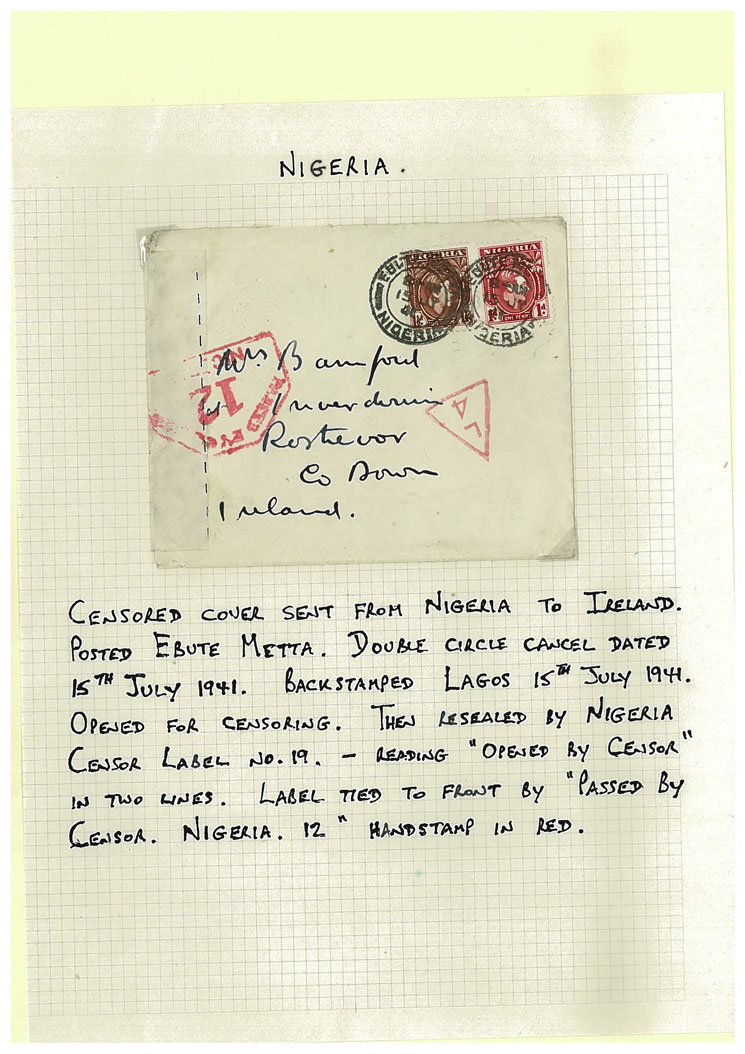 NIGERIA.
NIGERIA
NIGERIA
ONE PENNY
1d
NIGERIA
NIGERIA
Mrs Bamford
Rostrevor
Co Down
Ireland.
12
L
A
CENSORED COVER SENT FROM NIGERIA TO IRELAND.
POSTED EBUTE METTA. DOUBLE CIRCLE CANCEL DATED
15TH JULY 1941. BACKSTAMPED LAGOS 15TH JULY 1941.
OPENED FOR CENSORING. THEN RESEALED BY NIGERIA
CENSOR LABEL NO. 19. – READING "OPENED BY CENSOR"
IN TWO LINES. LABEL TIED TO FRONT BY "PASSED BY
CENSOR. NIGERIA. 12" HANDSTAMP IN RED.